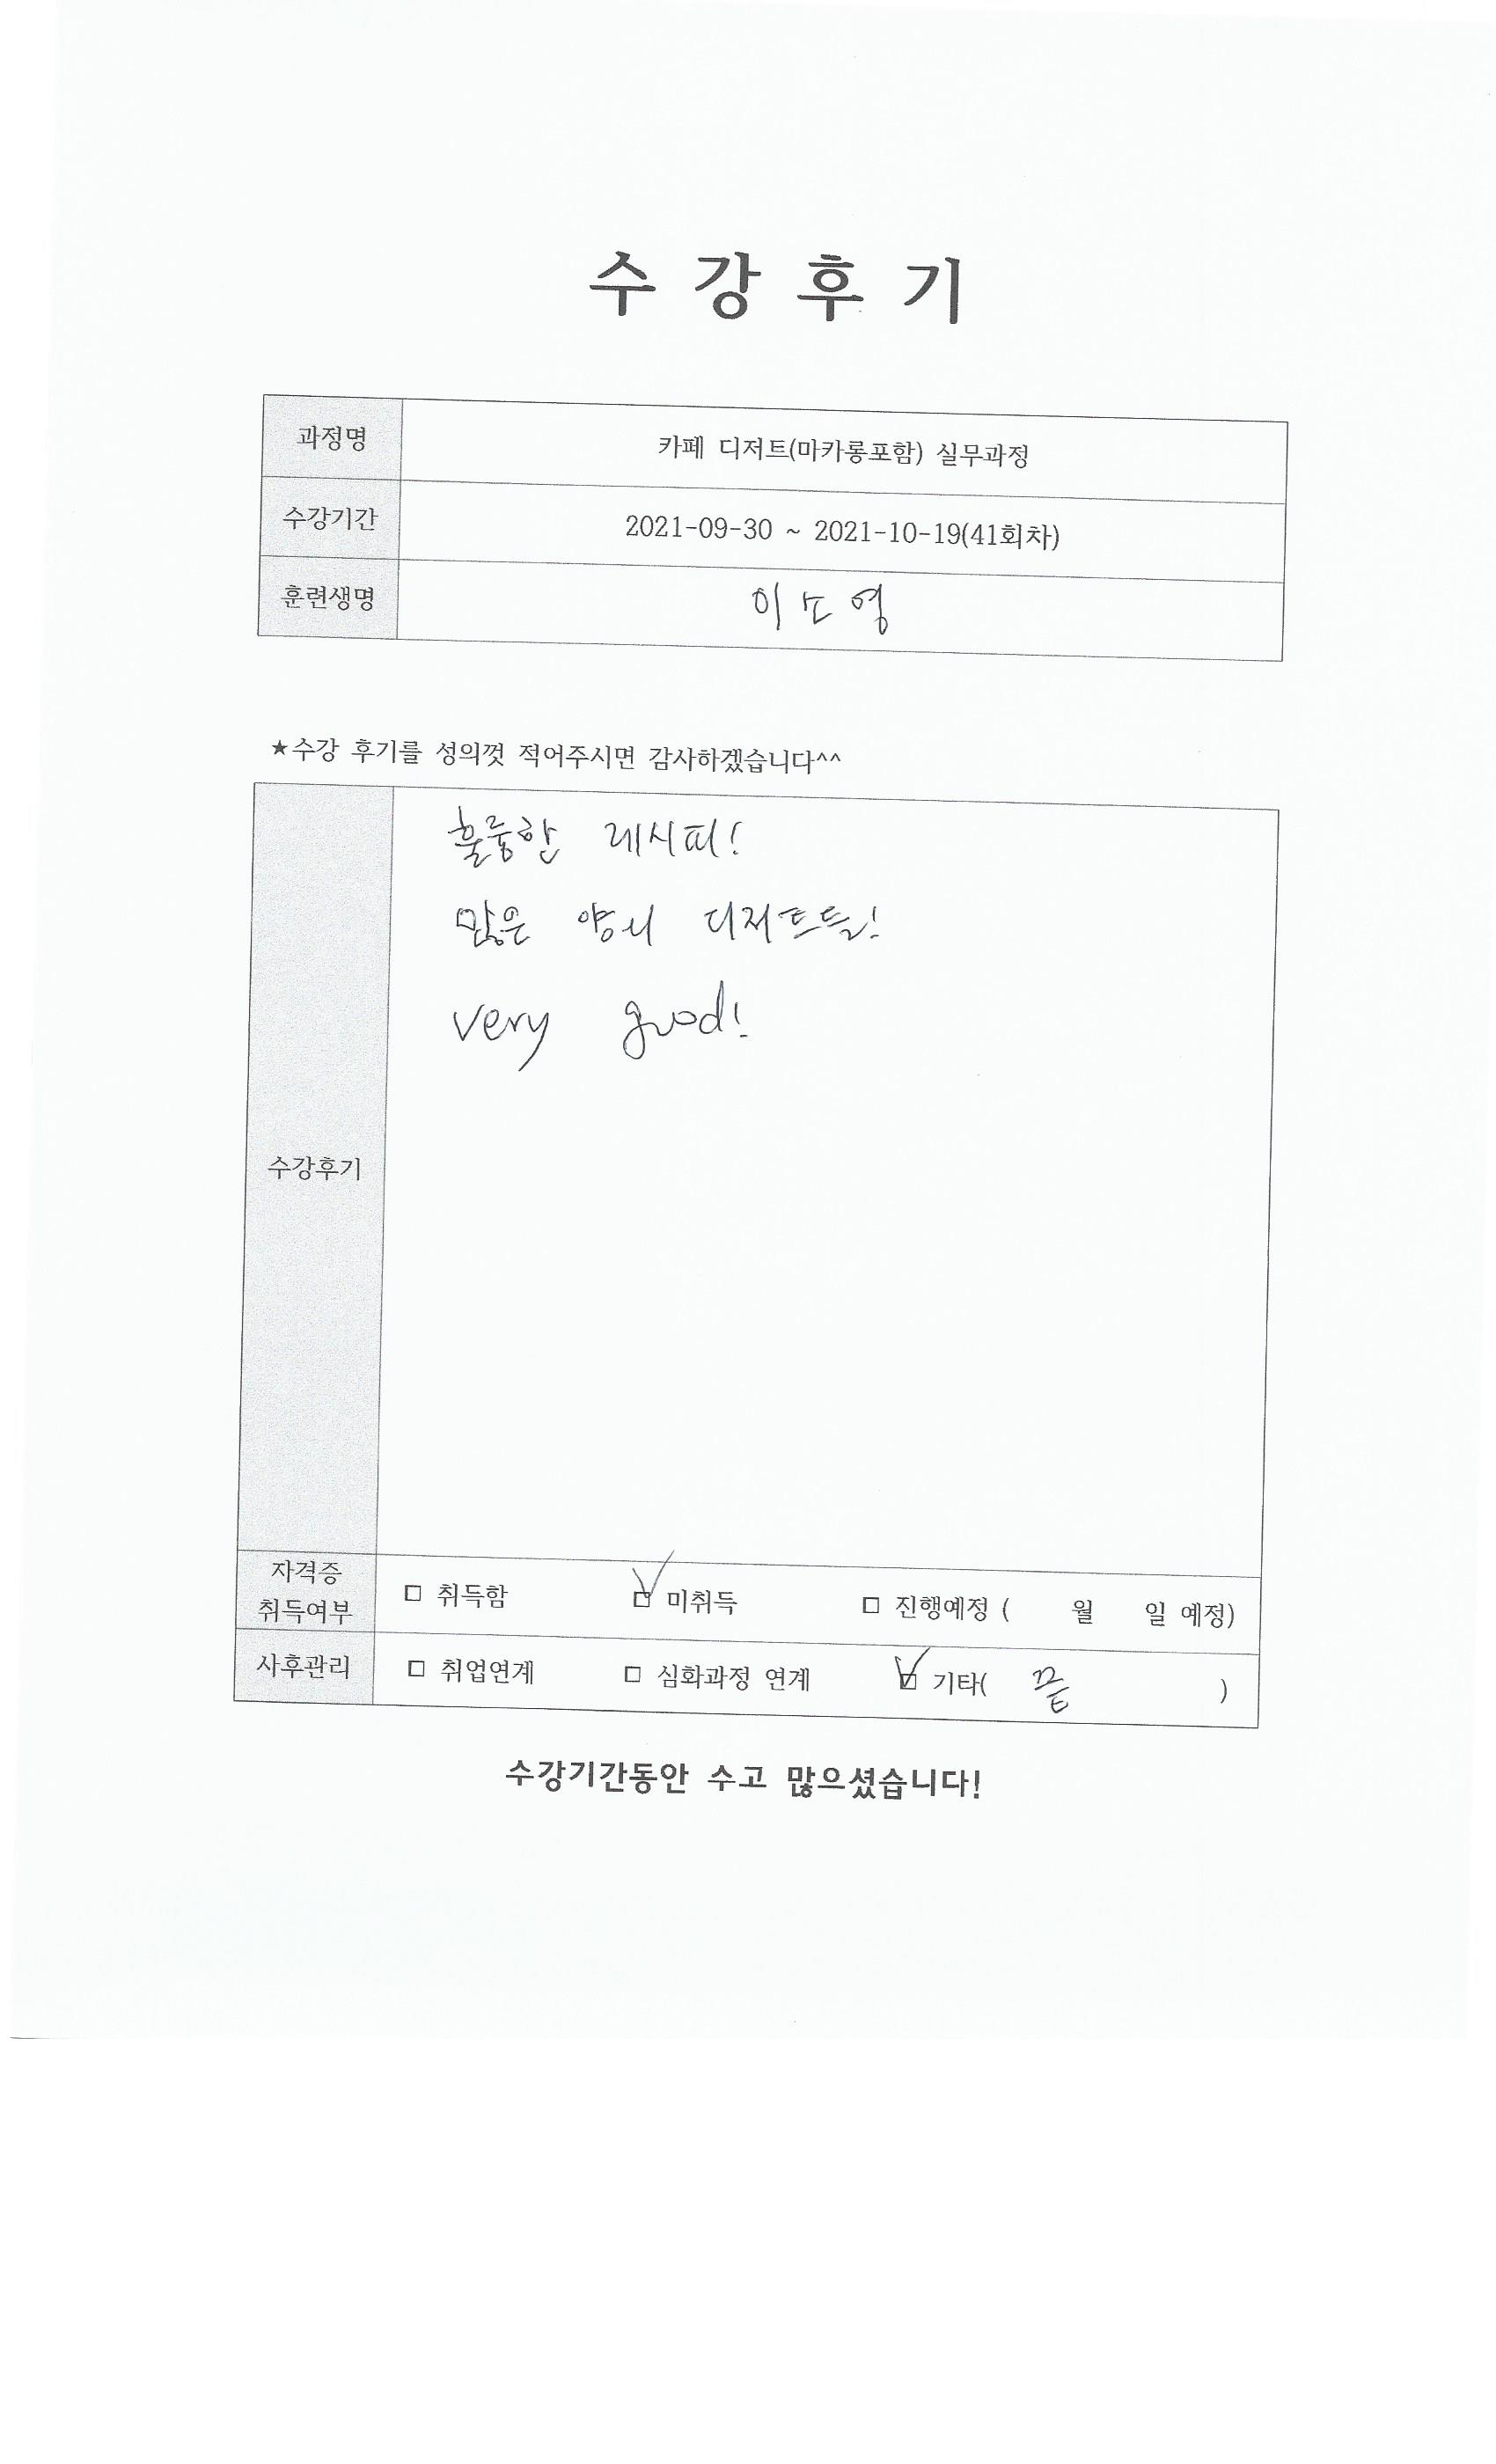 수 강 후 기
과정명 카페 디저트(마카롱포함) 실무과정
수강기간 2021-09-30 ~ 2021-10-19(41회차)
훈련생명 이도영
★수강 후기를 성의껏 적어주시면 감사하겠습니다^^
훌륭한 레시피!
많은 양의 디저트들!
very good!
수강후기
자격증
취득여부 □ 취득함 □ 미취득 □ 진행예정 ( 월 일 예정)
사후관리 □ 취업연계 □ 심화과정 연계 □ 기타( )
수강기간동안 수고 많으셨습니다!